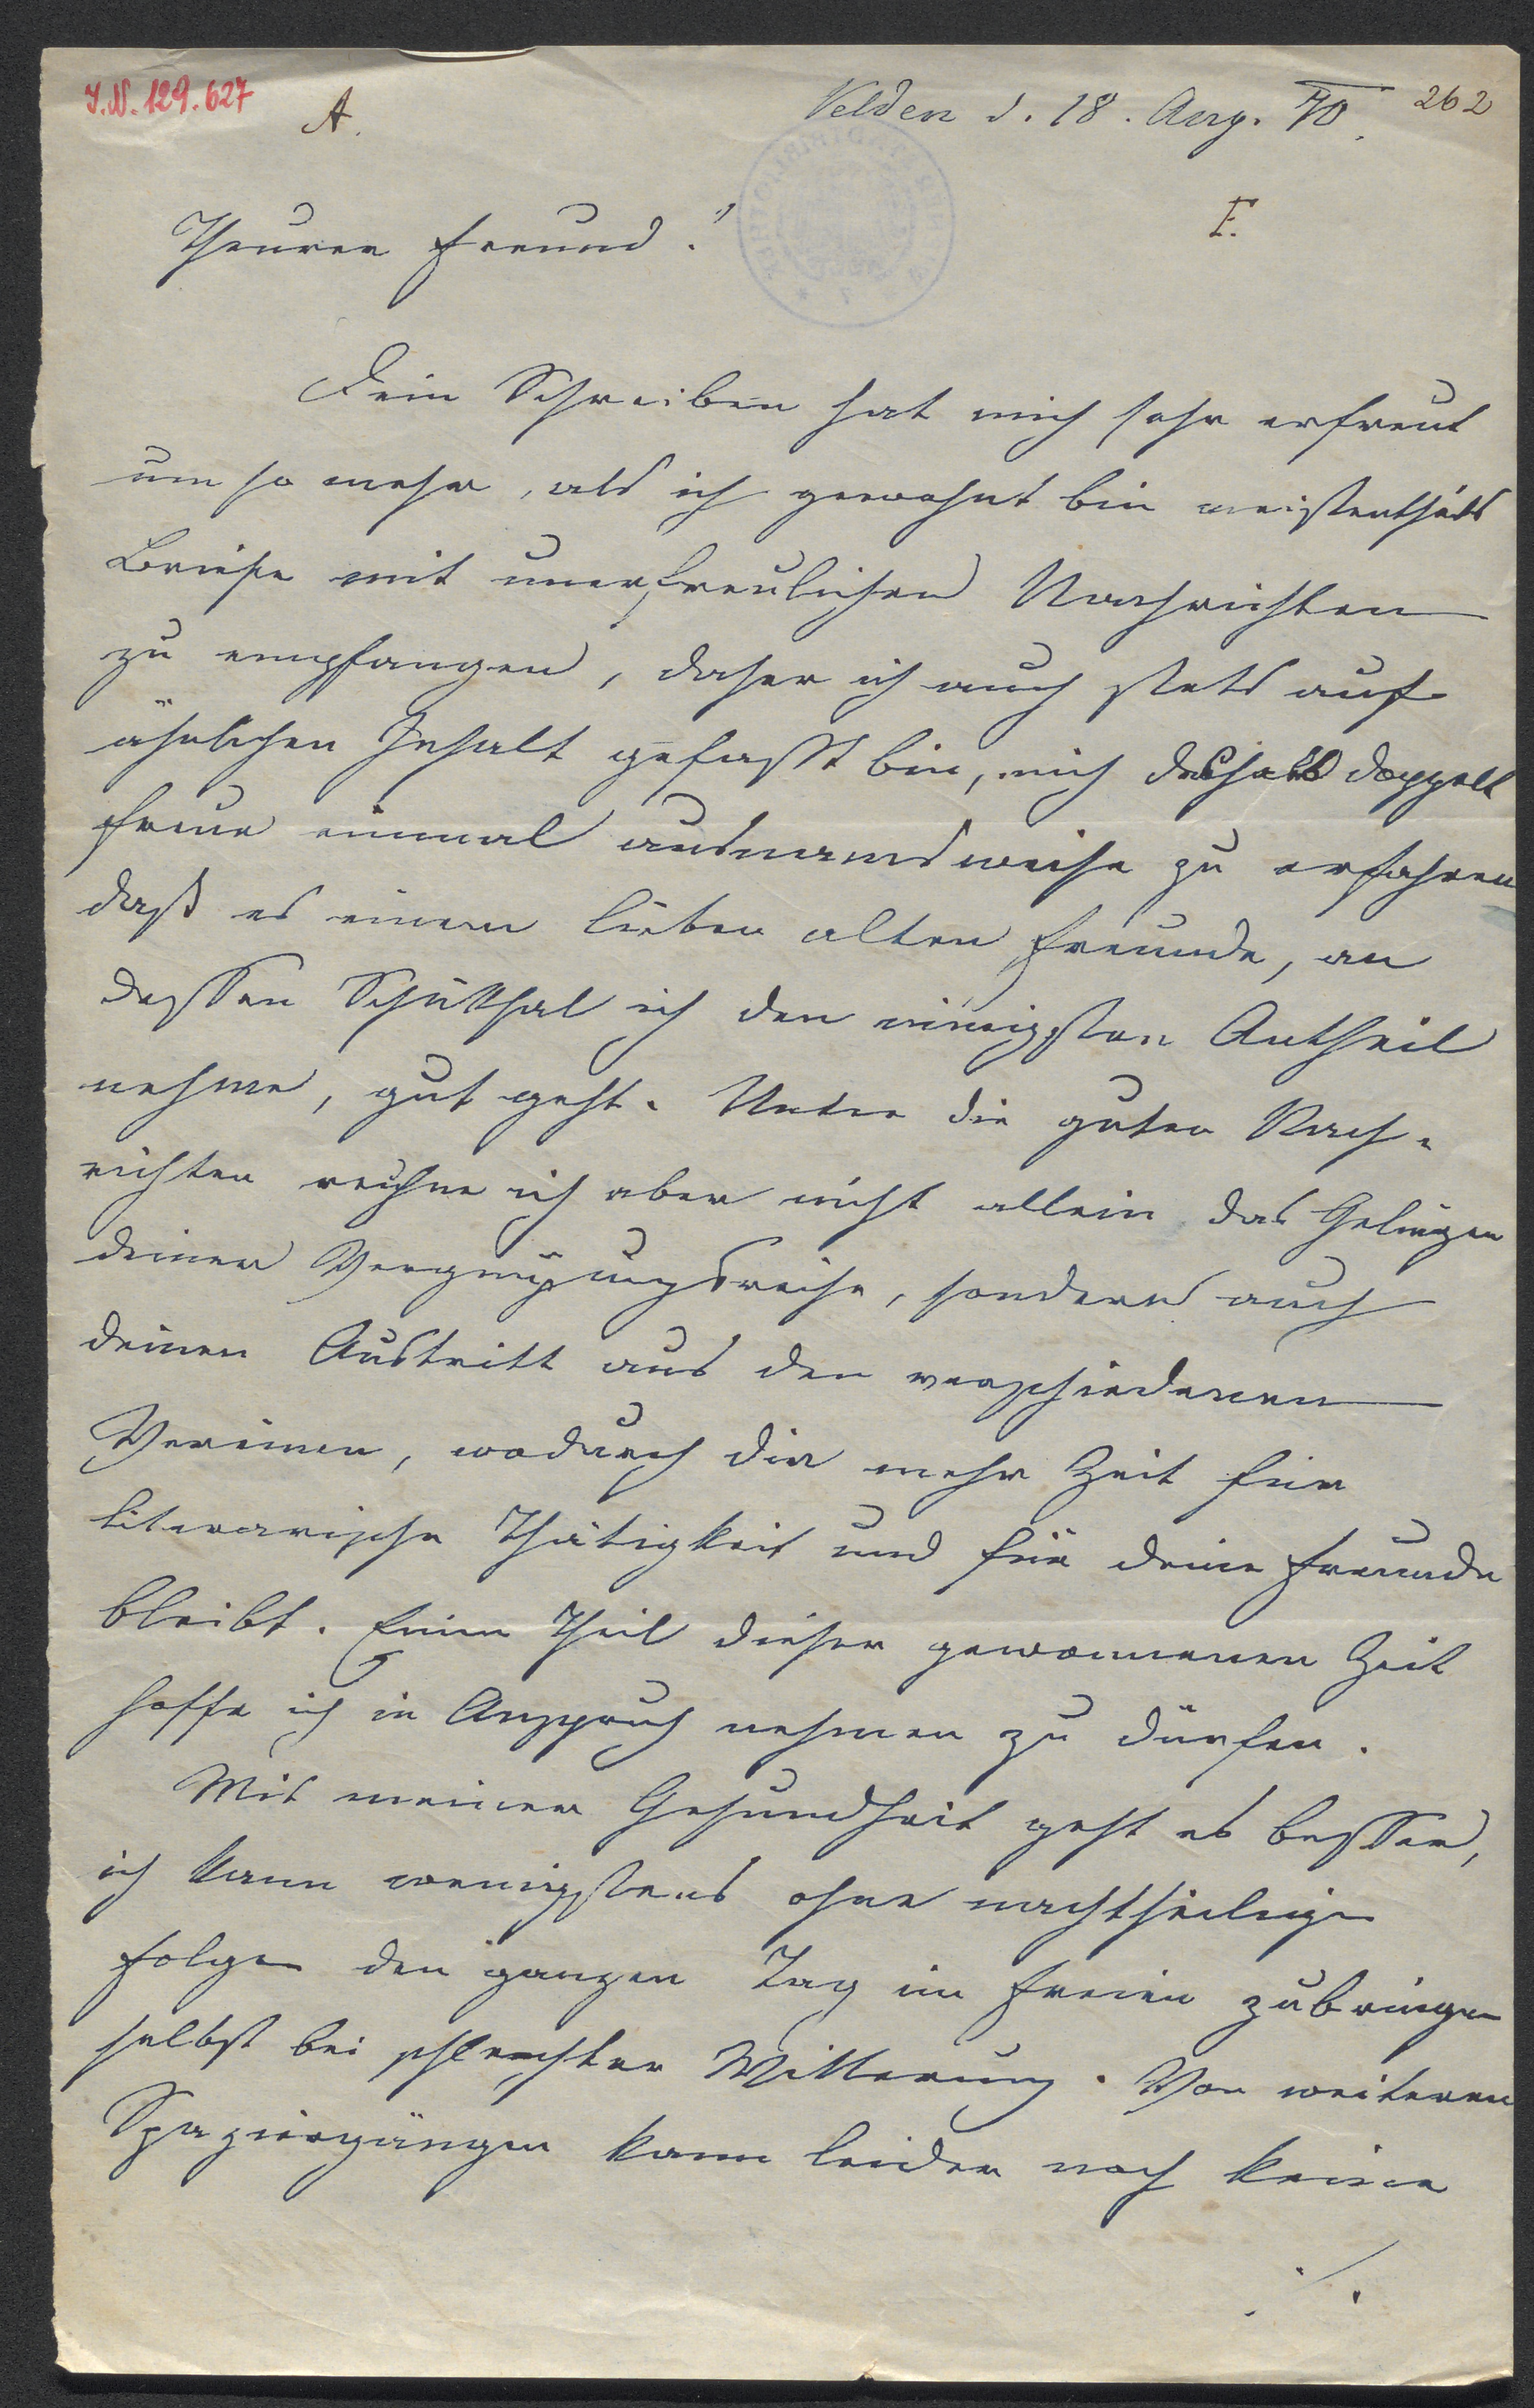 I.N. 129.627
A.
Velden d. 18. Aug. 70.
262
F.
Theurer Freund!
Dein Schreiben hat mich sehr erfreut
um so mehr, als ich gewohnt bin meistentheils
Briefe mit unerfreulichen Nachrichten
zu empfangen, daher ich auch stets auf
ähnlichen Inhalt gefasst bin, mich deshalb doppelt
freue einmal ausnamsweise zu erfahren
daß es einem lieben alten Freunde, an
dessen Schicksal ich den innigsten Antheil
nehme, gut geht. Unter die guten Nach-
richten rechne ich aber nicht allein das Gelingen
deiner Vergnügungsreise, sondern auch
deinen Austritt aus den verschiedenen
Vereinen, wodurch dir mehr Zeit für
literarische Thätigkeit und für deine Freunde
bleibt. Einen Theil dieser gewonnenen Zeit
hoffe ich in Anspruch nehmen zu dürfen.
Mit meiner Gesundheit geht es besser,
ich kann wenigstens ohne nachtheilige
Folgen den ganzen Tag im Freien zubringen
selbst bei schlechter Witterung. Von weiteren
Spaziergängen kann leider noch keine
./.